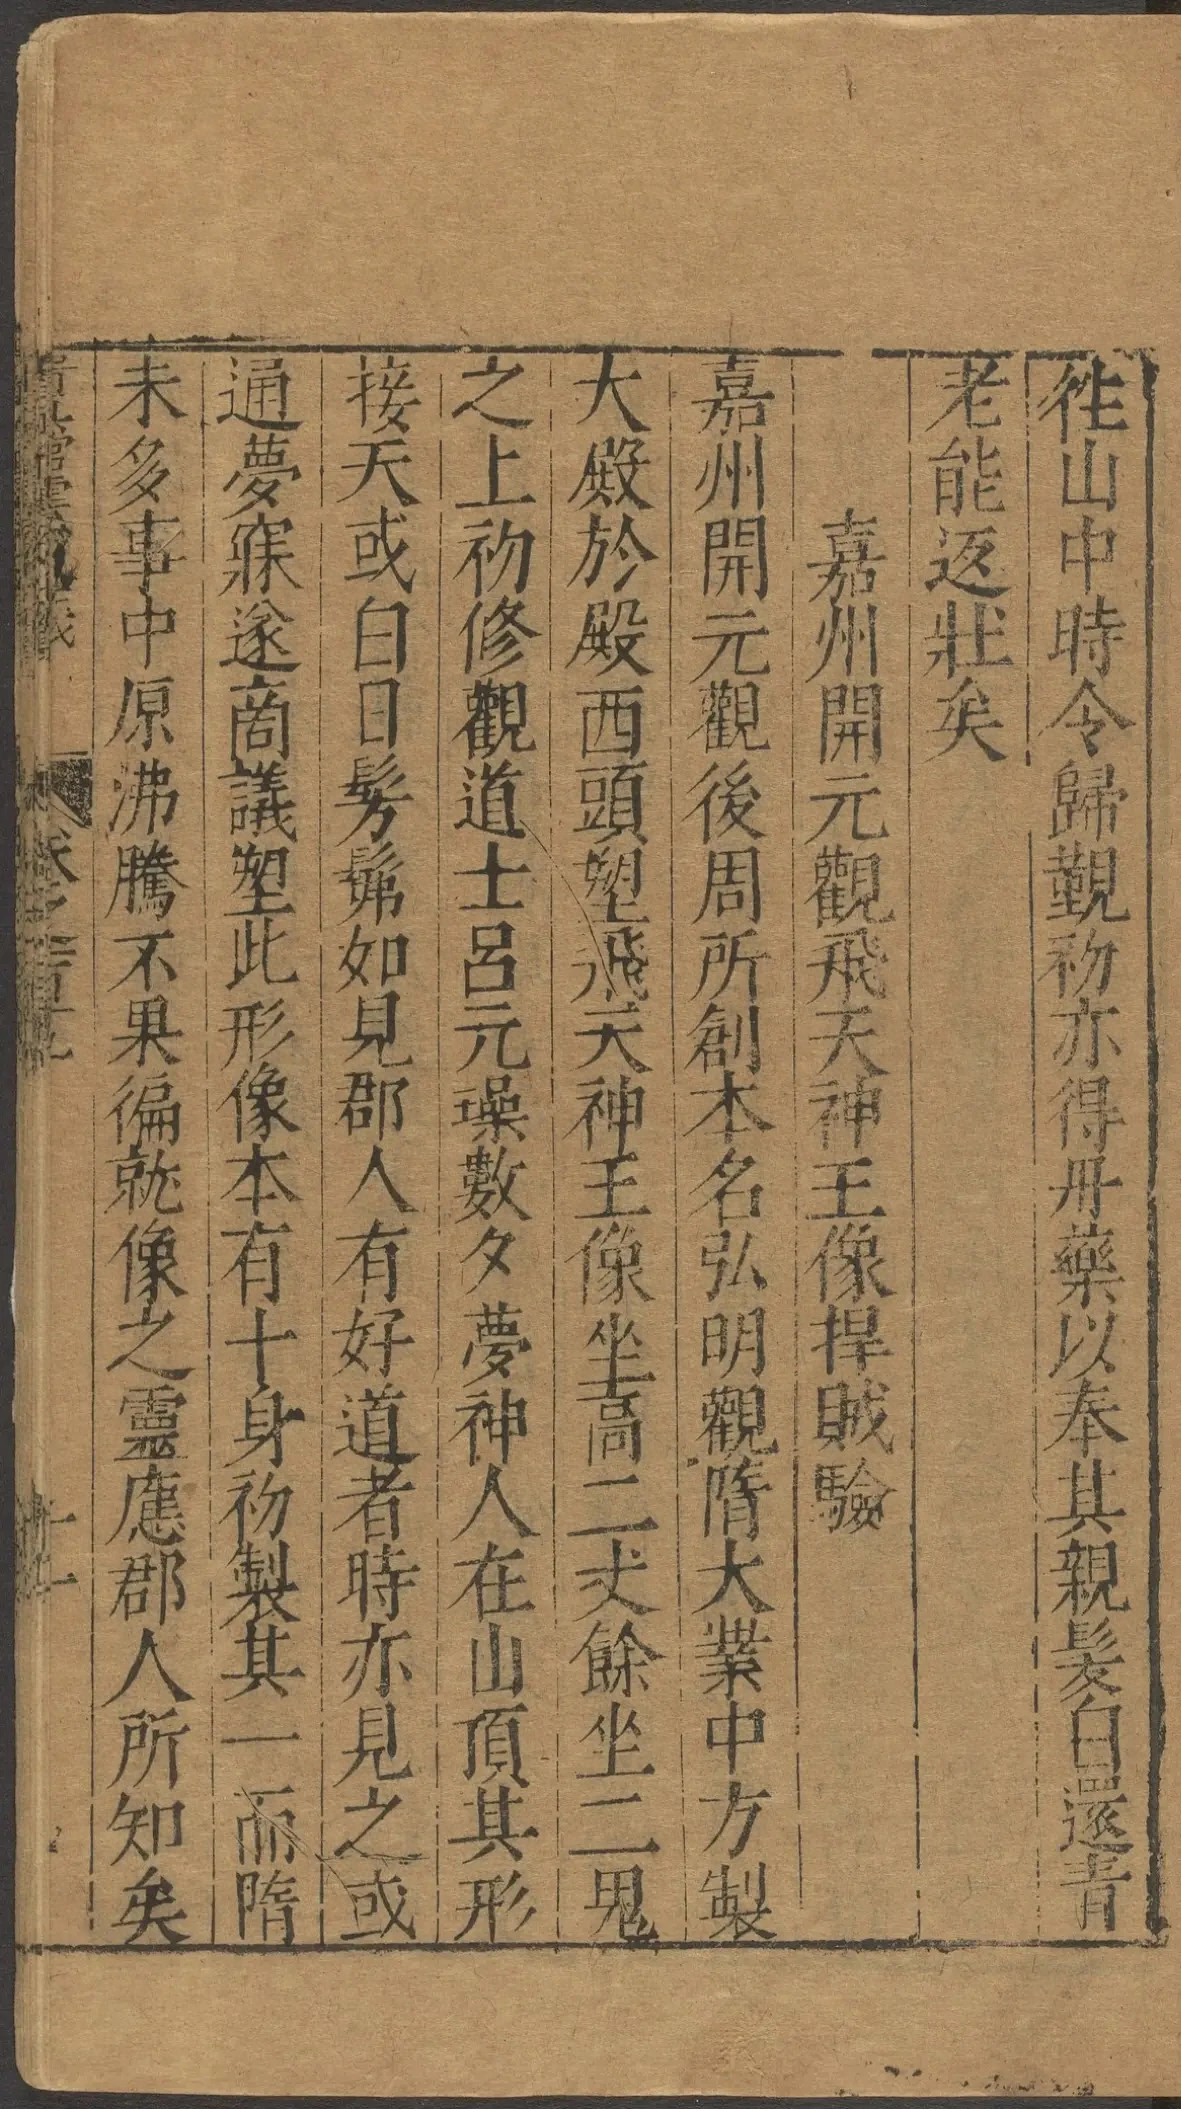 徃山中時令歸覲初亦得丹藥以奉其親髮白還青
老能返壯矣
嘉州開元觀飛天神王像捍賊驗
嘉州開元觀後周所創本名弘明觀隋大業中方製
大殿於殿西頭塑飛天神王像坐高二丈餘坐二鬼
之上初修觀道士呂元璪數夕夢神人在山頂其形
接天或白日髣髴如見郡人有好道者時亦見之或
通夢寐遂商議塑此形像本有十身初製其一而隋
末多事中原沸騰不果徧就像之靈應郡人所知矣